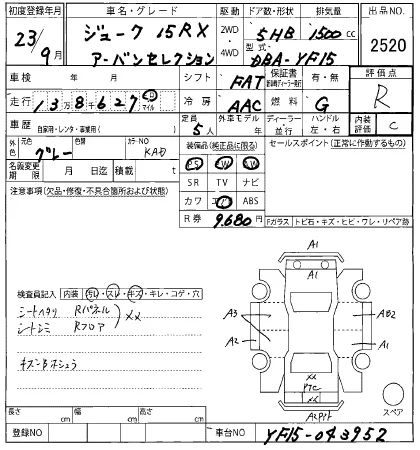 初度登録年月 車名・グレード 駆動 ドア数・形状 排気量 出品NO.
23/9月 ジューク 15RX 2WD 5HB 1500cc 2520
アーバンセレクション 4WD 型式 DBA-YF15
車検 年 月 シフト FAT 保証書 有・無 評価点
走行 13万8千627 km マイル 冷房 AAC 燃料 G R
車歴 自家用・レンタ・事業用( ) 定員 5人 外車モデル 年 ディーラー・並行 ハンドル 左・右 内装評価 C
外色 元色 グレー 色替 カラーNO KAD 装備品(純正品に限る) セールスポイント(正常に作動するもの)
名義変更期限 月 日迄 積載 t PS PW SW
注意事項(欠品・修復・不具合箇所および状態) SR TV ナビ
カワ エアB ABS
R券 9,680円 Fガラス トビ石・キズ・ヒビ・ワレ・リペア跡
A1
A1
検査員記入 内装 汚レ・スレ・キズ・キレ・コゲ・穴
シートヘタリ Rパネル XX
シートシミ Rフロア
キズンBオショウ
A3 AB2
A2 A1
XX
PTC
A2Pイト
スペア
長さ cm 幅 cm 高さ cm
登録NO 車台NO YF15-043952